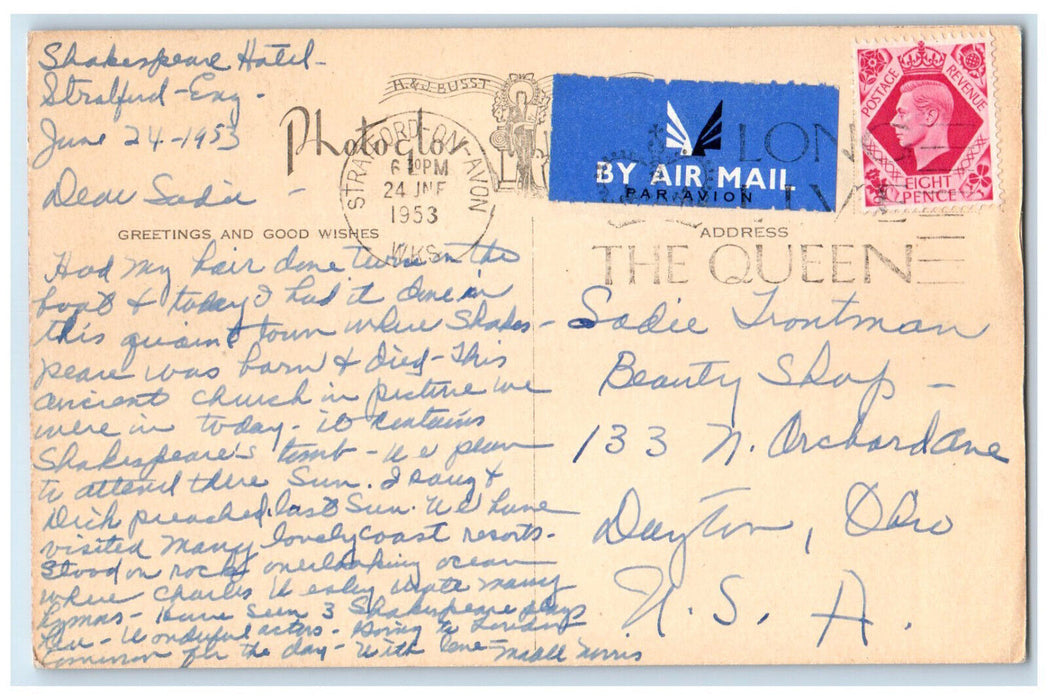 Shakespeare Hotel-
Stratford-Eng.
June 24-1953
Dear Sadie -
H. & J. BUSST
Photoglos
STRATFORD-ON-AVON
6 PM
24 JNE
1953
WKS.
BY AIR MAIL
PAR AVION
LONG
LIVE
THE QUEEN
POSTAGE REVENUE
EIGHT
PENCE
GREETINGS AND GOOD WISHES
ADDRESS
Had my hair done twice on the
boat & today I had it done in
this quaint town where Shakes-
peare was born & died - This
ancient church in picture we
were in today - it contains
Shakespeare's tomb - we plan
to attend there Sun. I sang &
Dick preached last Sun. We have
visited many lovely coast resorts -
Stood on rocks overlooking ocean
where Charles Wesley wrote many
hymns - Have seen 3 Shakespeare plays
here - Wonderful actors - Going to London
tomorrow for the day - With love - Mable Norris
Sadie Trontman
Beauty Shop -
133 N. Orchard Ave
Dayton, Ohio
U. S. A.